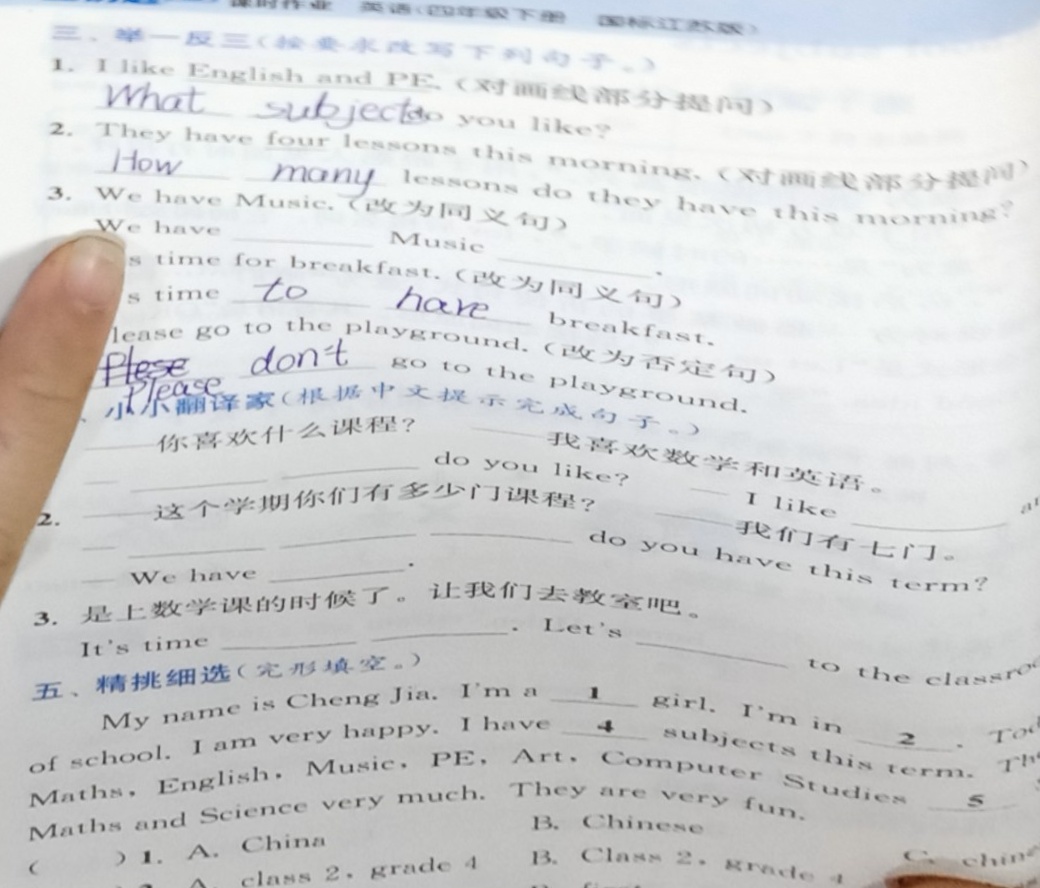 课时作业 英语(四年级下册 国标江苏版)
三、举一反三(按要求改写下列句子。)
1. I like English and PE. (对画线部分提问)
What subjects do you like?
2. They have four lessons this morning. (对画线部分提问)
How many lessons do they have this morning?
3. We have Music. (改为同义句)
We have ______ Music ______.
s time for breakfast. (改为同义句)
s time to have breakfast.
lease go to the playground. (改为否定句)
Plese don't go to the playground.
Please
、小小翻译家(根据中文提示完成句子。)
——你喜欢什么课程? ——我喜欢数学和英语。
— ______ ______ do you like? — I like ______
2. ——这个学期你们有多少门课程? ——我们有七门。
— ______ ______ ______ do you have this term?
— We have ______.
3. 是上数学课的时候了。让我们去教室吧。
It's time ______ ______. Let's ______ to the
五、精挑细选(完形填空。)
My name is Cheng Jia. I'm a 1 girl. I'm in 2.
of school. I am very happy. I have 4 subjects this term.
Maths, English, Music, PE, Art, Computer Studies 5
Maths and Science very much. They are very fun.
( ) 1. A. China B. Chinese C.
A. class 2, grade 4 B. Class 2, grade 4